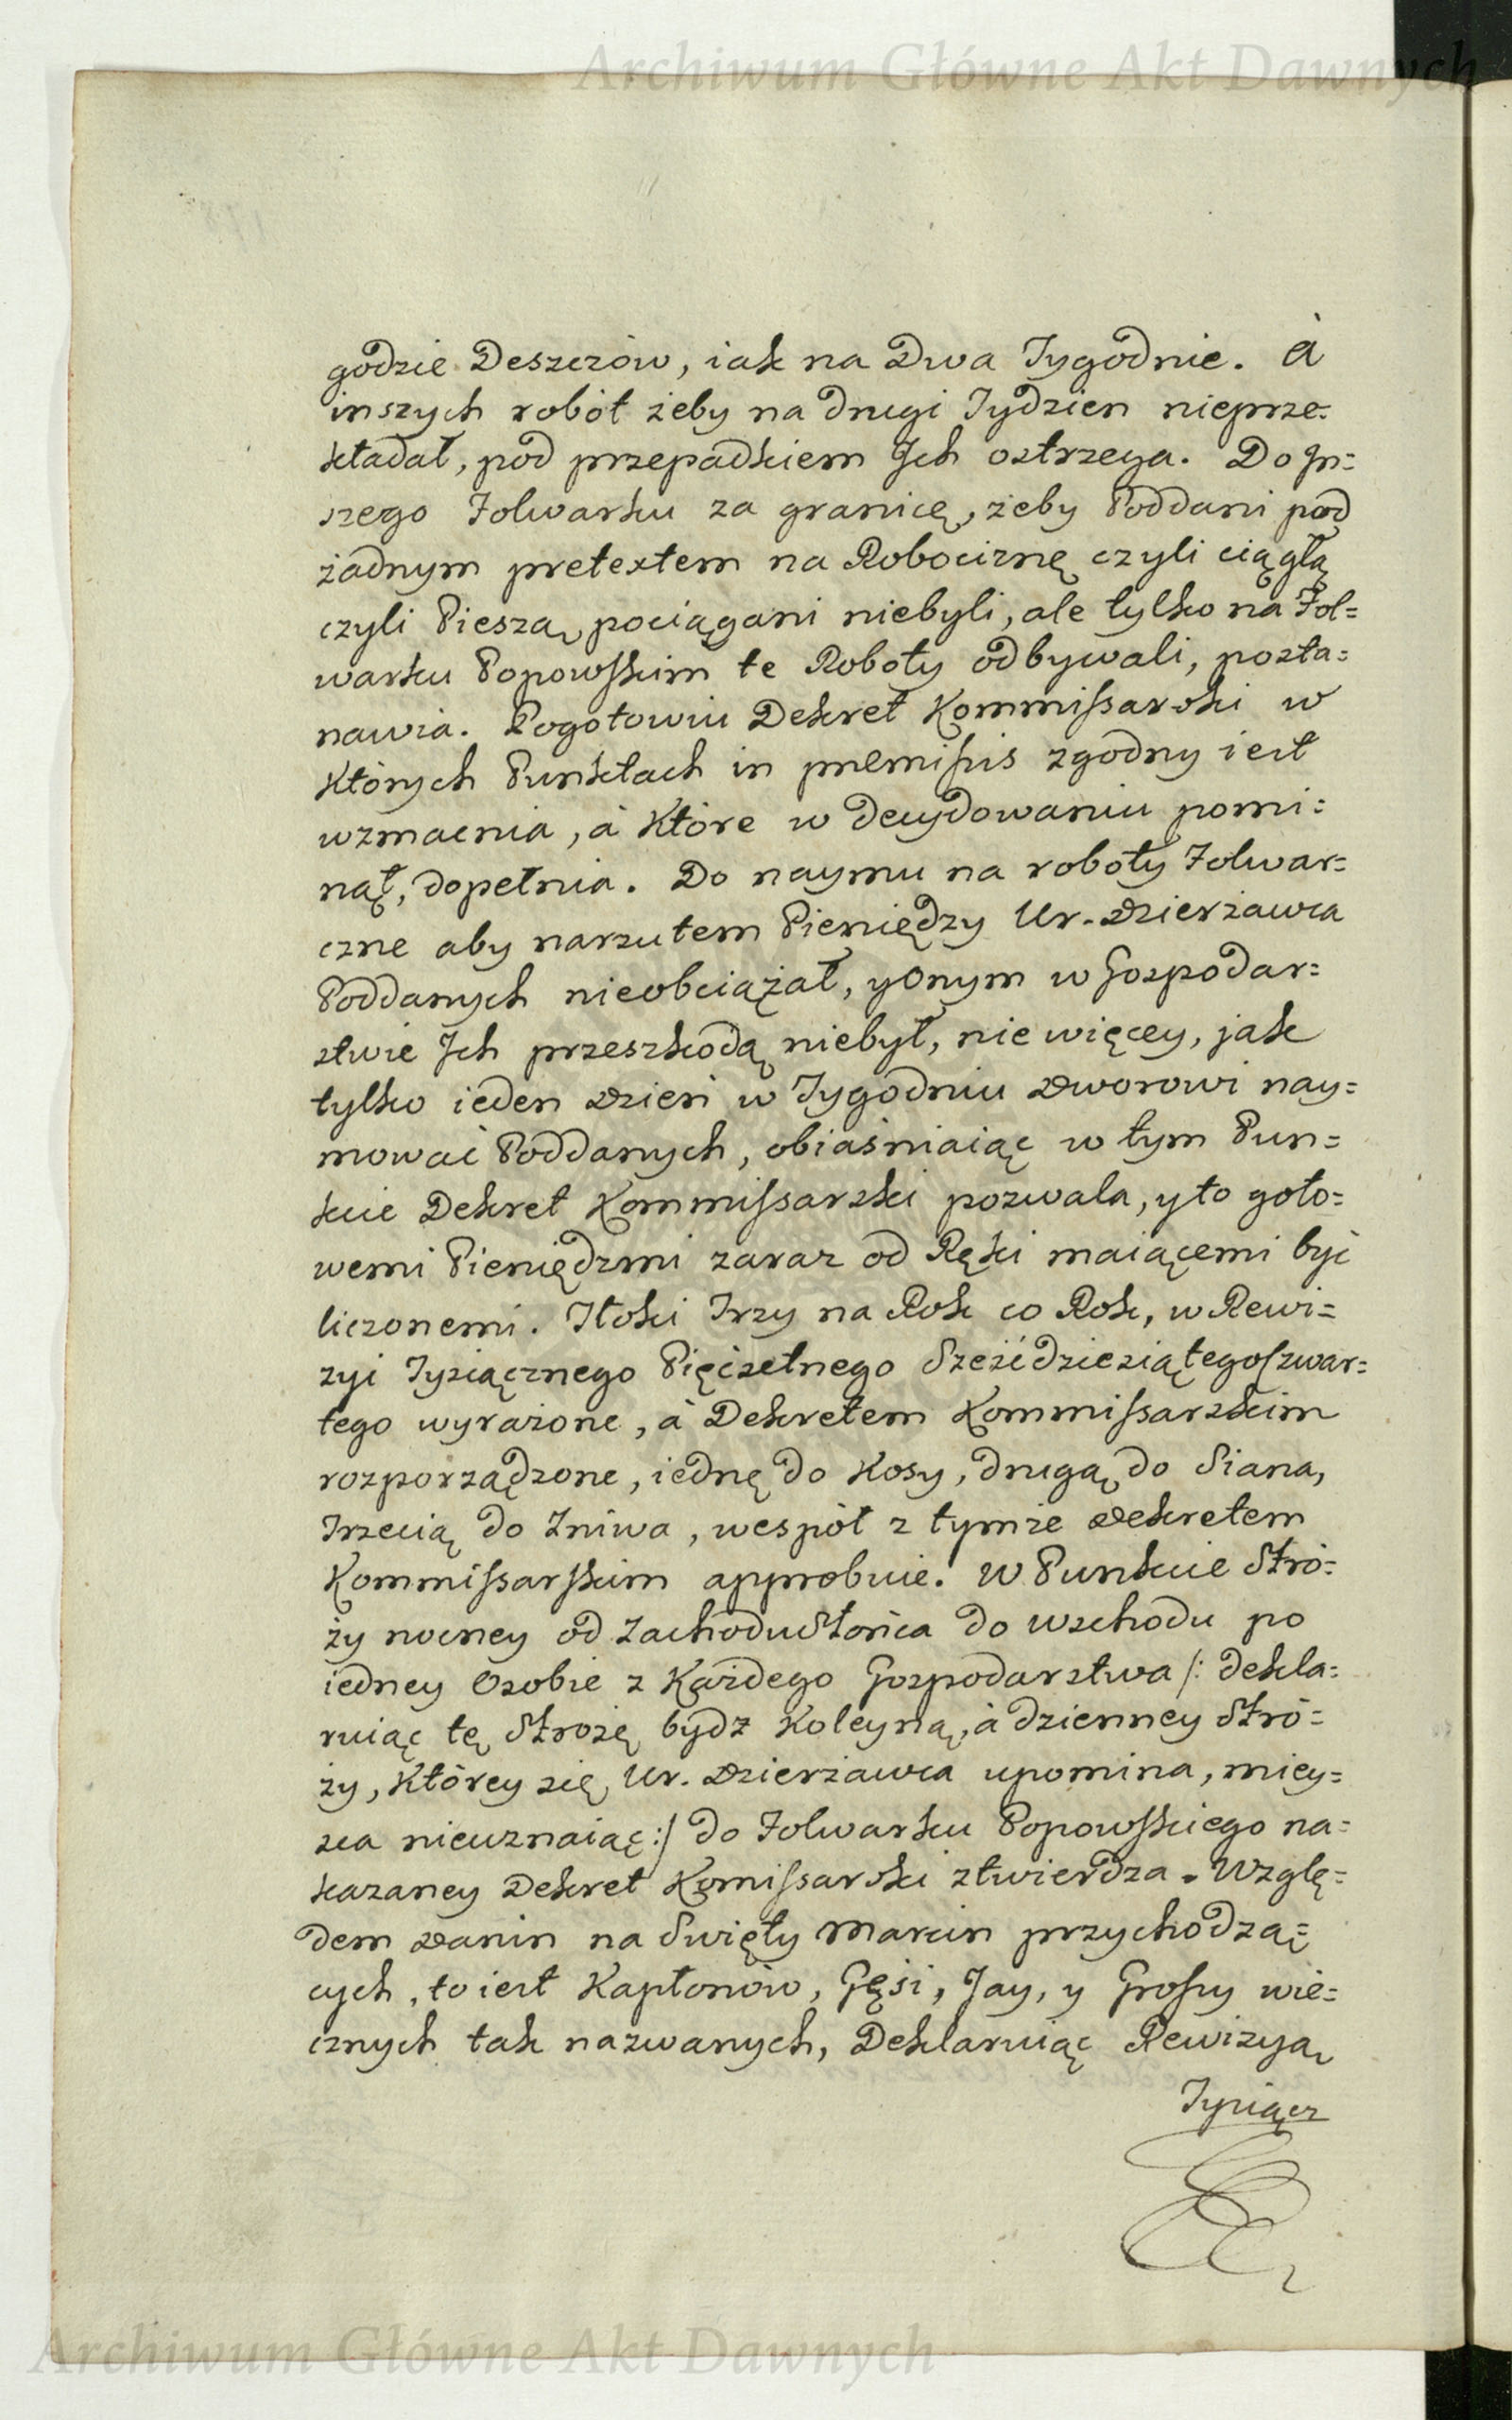 Archiwum Główne Akt Dawnych
godzie Deszczów, iak na Dwa Tygodnie. à
inszych robót żeby na drugi Tydzien nieprze=
kładał, pod przepadkiem Jch ostrzega. Do Jn=
szego Folwarku za granicę, żeby Poddani pod
żadnym pretextem na Robociznę czyli ciągłą
czyli Pieszą pociągani niebyli, ale tylko na Fol=
warku Popowskim te Roboty odbywali, posta=
nawia. Pogotowiu Dekret Kommissarski w
Których Punktach in premissis zgodny iest
wzmacnia, à Które w decydowaniu pomi=
nął, dopełnia. Do naymu na roboty Folwar=
czne aby narzutem Pieniędzy Ur. Dzierżawca
Poddanych nieobciążał, y onym w Gospodar=
stwie Jch przeszkodą niebył, nie więcey, jak
tylko ieden Dzień w Tygodniu Dworowi nay=
mować Poddanych, obiaśniaiąc w tym Pun=
kcie Dekret Kommissarski pozwala, y to goto=
wemi Pieniędzmi zaraz od Ręki maiącemi być
liczonemi. Tłoki Trzy na Rok co Rok, w Rewi=
zyi Tysiącznego Pięćsetnego Sześćdziesiątego Czwar=
tego wyrażone, à Dekretem Kommissarskim
rozporządzone, iednę do Kosy, drugą do Siana,
Trzecią do Żniwa, wespół z tymże Dekretem
Kommissarskim approbuie. W Punkcie Stró=
ży nocney od Zachodu Słońca do Wschodu po
iedney Osobie z Każdego Gospodarstwa /: dekla=
ruiąc tę Strożę bydz Koleyną, à dzienney Stró=
ży, Którey się Ur. Dzierżawca upomina, miey=
sca nieuznaiąc :/ do Folwarku Popowskiego na=
kazaney Dekret Komissarski ztwierdza. Wzglę=
dem Danin na Swięty Marcin przychodzą=
cych, to iest Kapłonów, Gęsi, Jay, y Grossy wie=
cznych tak nazwanych, Deklaruiąc Rewizyą
Tysiącz
Archiwum Główne Akt Dawnych